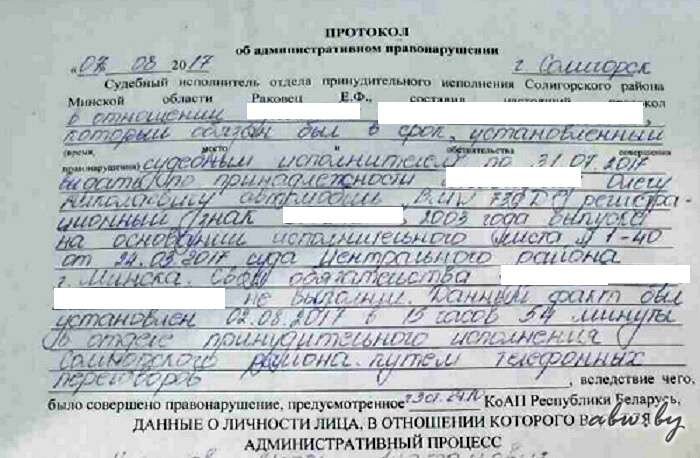 ПРОТОКОЛ
об административном правонарушении
«07» 08 2017 г. Солигорск
Судебный исполнитель отдела принудительного исполнения Солигорского района
Минской области Раковец Е.Ф., составил настоящий протокол
в отношении
который обязан был в срок, установленный
(время, место и обстоятельства совершения
правонарушения) судебным исполнителем по 31.07.2017
выдать по принадлежности Олегу
Николаевичу автомобиль БМВ регистра-
ционный знак , 2003 года выпуска
на основании исполнительного листа № 1-40
от 24.03.2017 суда Центрального района
г. Минска. Свои обязательства
не выполнил. Данный факт был
установлен 02.08.2017 в 15 часов 54 минуты
в отделе принудительного исполнения
Солигорского района путем телефонных
переговоров , вследствие чего,
было совершено правонарушение, предусмотренное КоАП Республики Беларусь,
ДАННЫЕ О ЛИЧНОСТИ ЛИЦА, В ОТНОШЕНИИ КОТОРОГО
АДМИНИСТРАТИВНЫЙ ПРОЦЕСС
abw.by